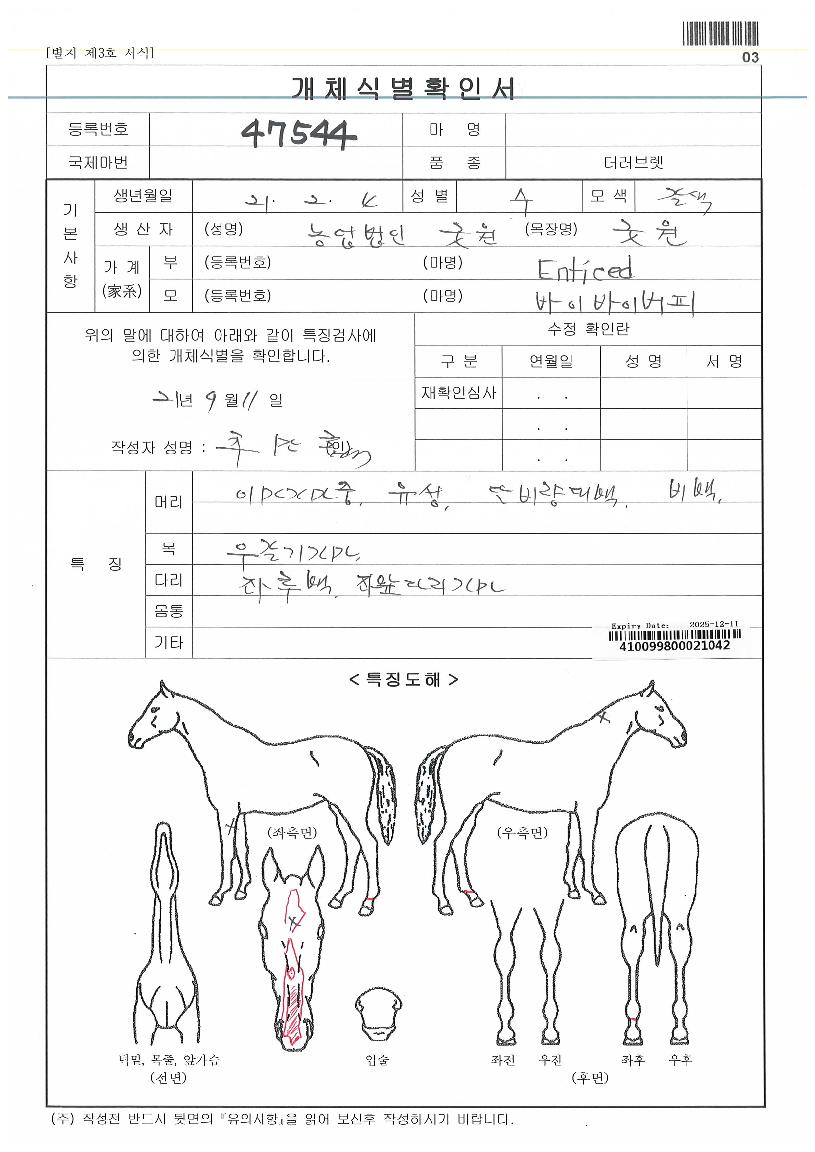 [별지 제3호 서식]
03
개체식별확인서
등록번호 47544 마 명
국제마번 품 종 더러브렛
기본사항
생년월일 21. 2. 4 성 별 수 모 색 줄색
생 산 자 (성명) 농업법인 굿원 (목장명) 굿원
가 계 (家系)
부 (등록번호) (마명) Enticed
모 (등록번호) (마명) 바이바이버피
위의 말에 대하여 아래와 같이 특징검사에
의한 개체식별을 확인합니다.
21년 9월 11일
작성자 성명 : (인)
수정 확인란
구 분 연월일 성 명 서 명
재확인심사 . .
. .
. .
특 징
머리 유성, 비백,
목
다리 좌후백,
몸통
기타
Expiry Date: 2025-12-11
410099800021042
< 특징도해 >
(좌측면) (우측면)
턱밑, 목줄, 앞가슴 (전면)
입술
좌전 우전 좌후 우후
(후면)
(주) 작성전 반드시 뒷면의 『유의사항』을 읽어 보신후 작성하시기 바랍니다.